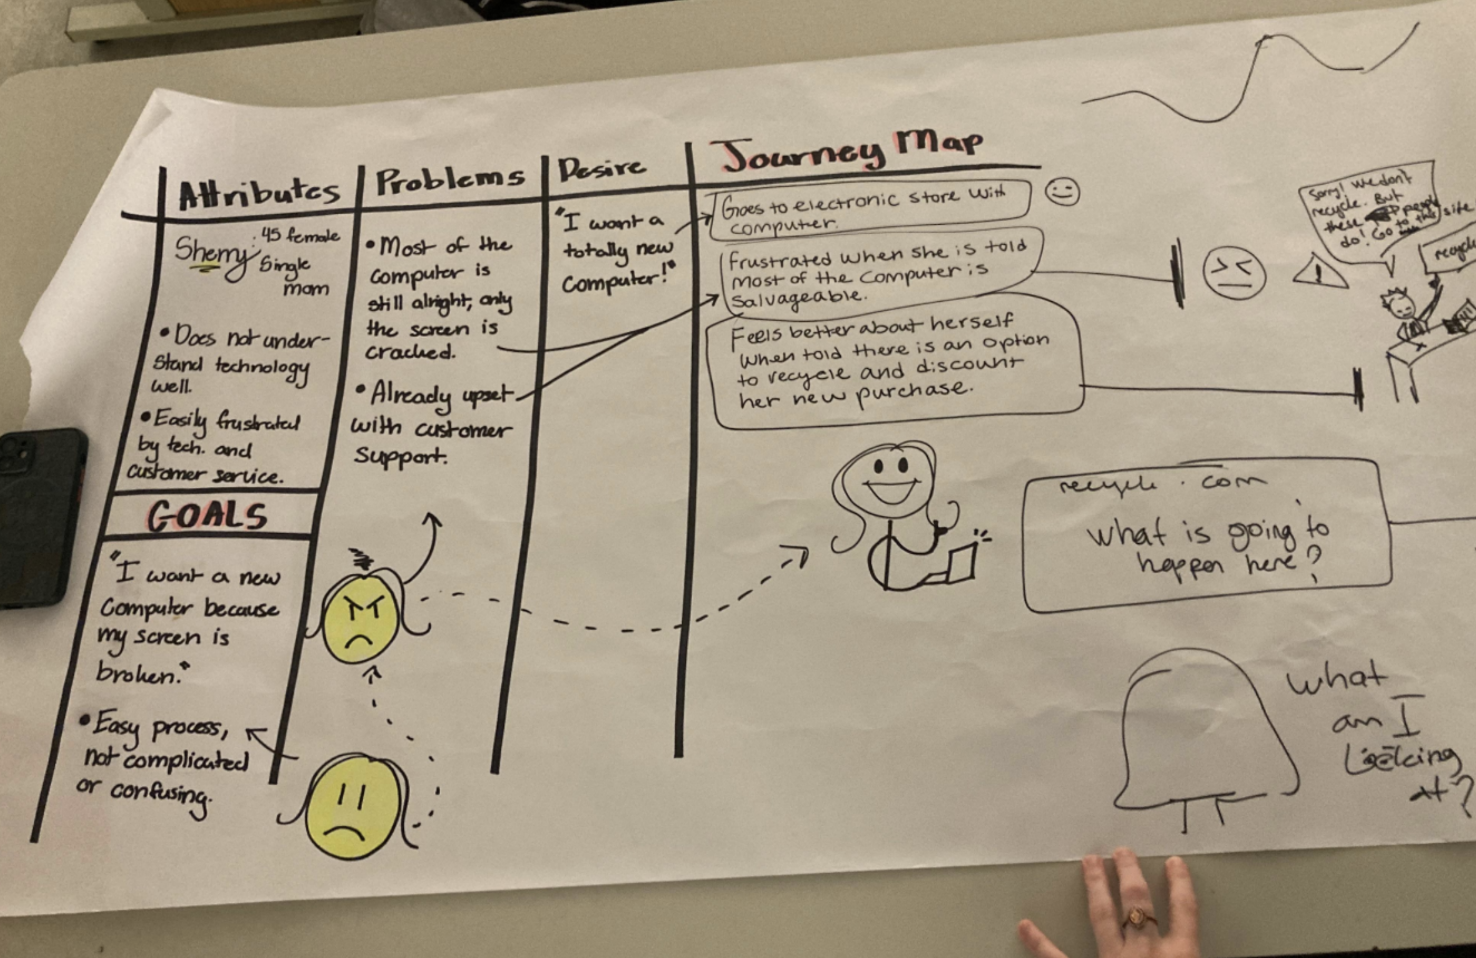 Attributes
Sherry : 45 female
Single
mom
• Does not under-
stand technology
well.
• Easily frustrated
by tech. and
customer service.
GOALS
"I want a new
Computer because
my screen is
broken."
• Easy process,
not complicated
or confusing.
Problems
• Most of the
computer is
still alright, only
the screen is
cracked.
• Already upset
with customer
support.
Desire
"I want a
totally new
computer!"
Journey Map
Goes to electronic store with
computer.
frustrated when she is told
most of the computer is
salvageable.
Feels better about herself
when told there is an option
to recycle and discount
her new purchase.
Sorry! We don't
recycle. But
these people
do! Go to this site
recycle
recycle.com
what is going to
happen here?
what
am I
Looking
at?